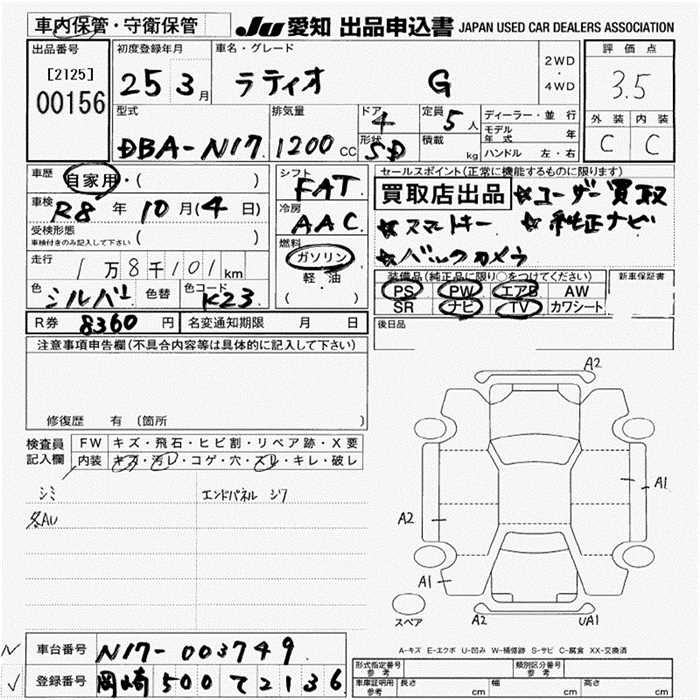 車内保管・守衛保管
JU 愛知 出品申込書 JAPAN USED CAR DEALERS ASSOCIATION
出品番号
[2125]
00156
初度登録年月
25 3月
車名・グレード
ラティオ G
2WD
・
4WD
評価点
3.5
外装 内装
C C
型式
DBA-N17
排気量
1200 cc
ドア
4
形状
SD
定員
5人
積載
kg
ディーラー・並行
モデル年式 年
ハンドル 左・右
車歴
自家用・( )
車検
R8年 10月(4日)
受検形態
車検付きのみ記入して下さい ( )
走行
1万8千101km
色
シルバー
色替
色コード
K23
R券 8360円
名変通知期限 月 日
シフト
FAT
冷房
AAC
燃料
ガソリン
軽・油
( )
セールスポイント(正常に機能するものに限ります)
買取店出品 ☆ユーザー買取
☆スマートキー ☆純正ナビ
☆バックカメラ
装備品(純正品に限り○をつけてください)
PS PW エアB AW
SR ナビ TV カワシート
新車保証書
後日品
注意事項申告欄(不具合内容等は具体的に記入して下さい)
修復歴 有 (箇所 )
検査員
記入欄
FW キズ・飛石・ヒビ割・リペア跡・X要
内装 キズ・汚レ・コゲ・穴・スレ・キレ・破レ
シミ
エンドパネル シワ
各AU
A2
A1
A2
A1
A2
UA1
スペア
A-キズ E-エクボ U-凹み W-補修跡 S-サビ C-腐食 XX-交換済
車台番号 N17-003749
登録番号 岡崎 500 て 2136
形式指定番号
参考
類別区分番号
参考
車庫証明用
参考
長さ cm 幅 cm 高さ cm